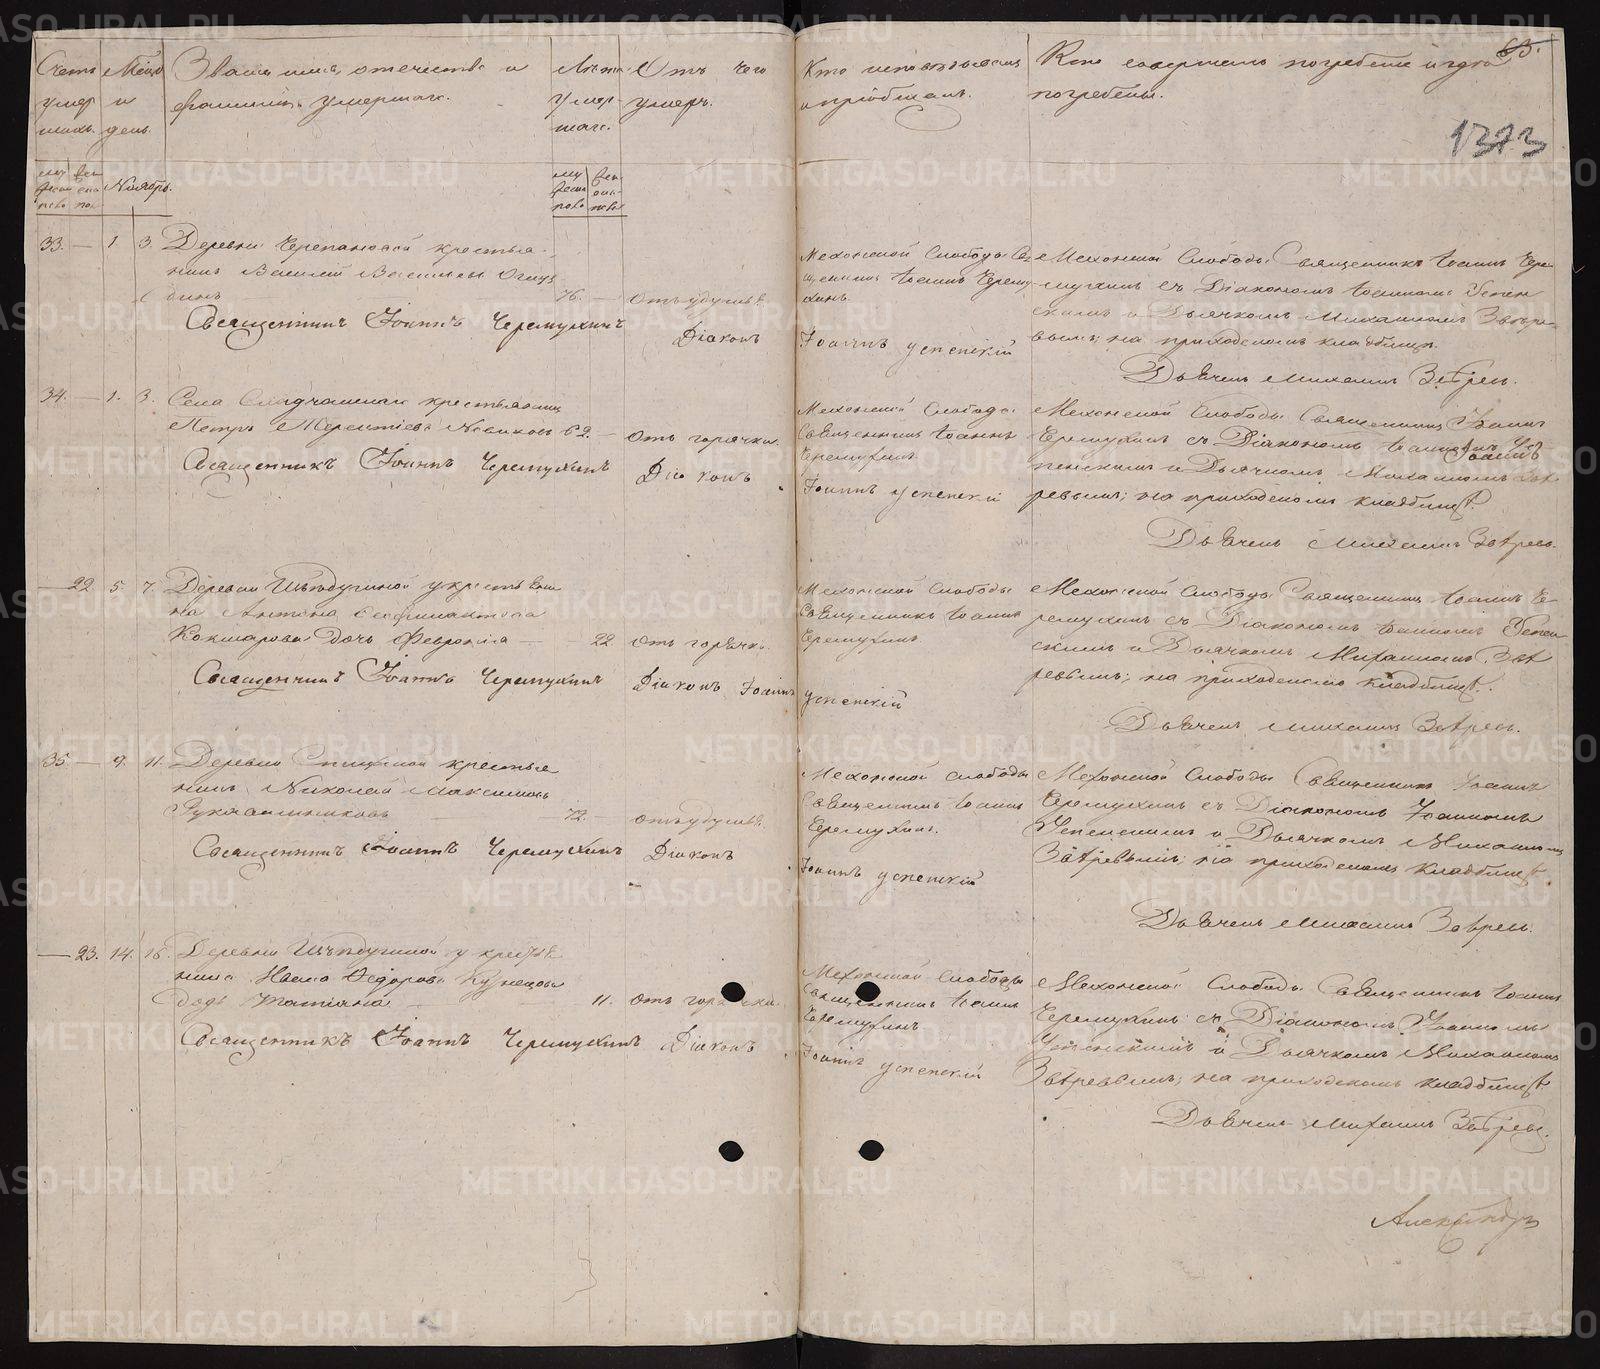 Счетъ умер шихъ.
Мсцъ и день.
Званіе имя, отечество и фамилія умершихъ.
Лета умер- шихъ.
Отъ чего умеръ.
Кто исповѣдывалъ и пріобщалъ.
Кто совершалъ погребеніе и гдѣ погребены.
63.
1373
Ноябрь.
33. — 1 3. Деревни Черепановой крестья-
нинъ Василій Васильевъ
76. — отъ удушья.
Священникъ Іоаннъ Черемухинъ
Діаконъ
Мехонской Слободы Свя-
щенникъ Іоаннъ Черему-
хинъ.
Іоаннъ успенскій
Мехонской Слободы Священникъ Іоаннъ Чере-
мухинъ съ Діакономъ Іоанномъ Успен
скимъ и Дьячкомъ Михаиломъ Звѣре-
вымъ; на приходскомъ кладбищѣ.
Дьячекъ Михаилъ Звѣревъ.
34. — 1. 3. Села крестьянинъ
Петръ Новиковъ 62. — отъ горячки
Священникъ Іоаннъ Черемухинъ
Діаконъ
Мехонской Слободы
Священникъ Іоаннъ
Черемухинъ
Іоаннъ успенскій
Мехонской Слободы Священникъ Іоаннъ
Черемухинъ съ Діакономъ Іоанномъ Ус
пенскимъ и Дьячкомъ Михаиломъ Звѣ
ревымъ; на приходскомъ кладбищѣ.
Дьячекъ Михаилъ Звѣревъ.
— 22 5 7. Деревни у крестьяни
на Антона
Кокшарова дочь Февронія — 22 отъ горячки.
Священникъ Іоаннъ Черемухинъ Діаконъ Іоаннъ
успенскій
Мехонской Слободы
Священникъ Іоаннъ
Черемухинъ
Мехонской Слободы Священникъ Іоаннъ Че-
ремухинъ съ Діакономъ Іоанномъ Успен
скимъ и Дьячкомъ Михаиломъ Звѣ
ревымъ; на приходскомъ кладбищѣ.
Дьячекъ Михаилъ Звѣревъ.
35 — 9. 11. Деревни Спицыной крестья
нинъ Николай Максимовъ
Рукавишниковъ 72. — отъ удушья.
Священникъ Іоаннъ Черемухинъ Діаконъ
Мехонской слободы
Священникъ Іоаннъ
Черемухинъ.
Іоаннъ успенскій
Мехонской Слободы Священникъ Іоаннъ
Черемухинъ съ Діакономъ Іоанномъ
Успенскимъ и Дьячкомъ Михаиломъ
Звѣревымъ; на приходскомъ кладбищѣ.
Дьячекъ Михаилъ Звѣревъ.
— 23. 14. 16. Деревни у крестья
нина Ивана Ѳедорова Кузнецова
дочь Татіана 11. отъ горячки.
Священникъ Іоаннъ Черемухинъ Діаконъ
Мехонской Слободы
Священникъ Іоаннъ
Черемухинъ.
Іоаннъ успенскій
Мехонской Слободы Священникъ Іоаннъ
Черемухинъ съ Діакономъ Іоанномъ
Успенскимъ и Дьячкомъ Михаиломъ
Звѣревымъ; на приходскомъ кладбищѣ.
Дьячекъ Михаилъ Звѣревъ.
METRIKI.GASO-URAL.RU